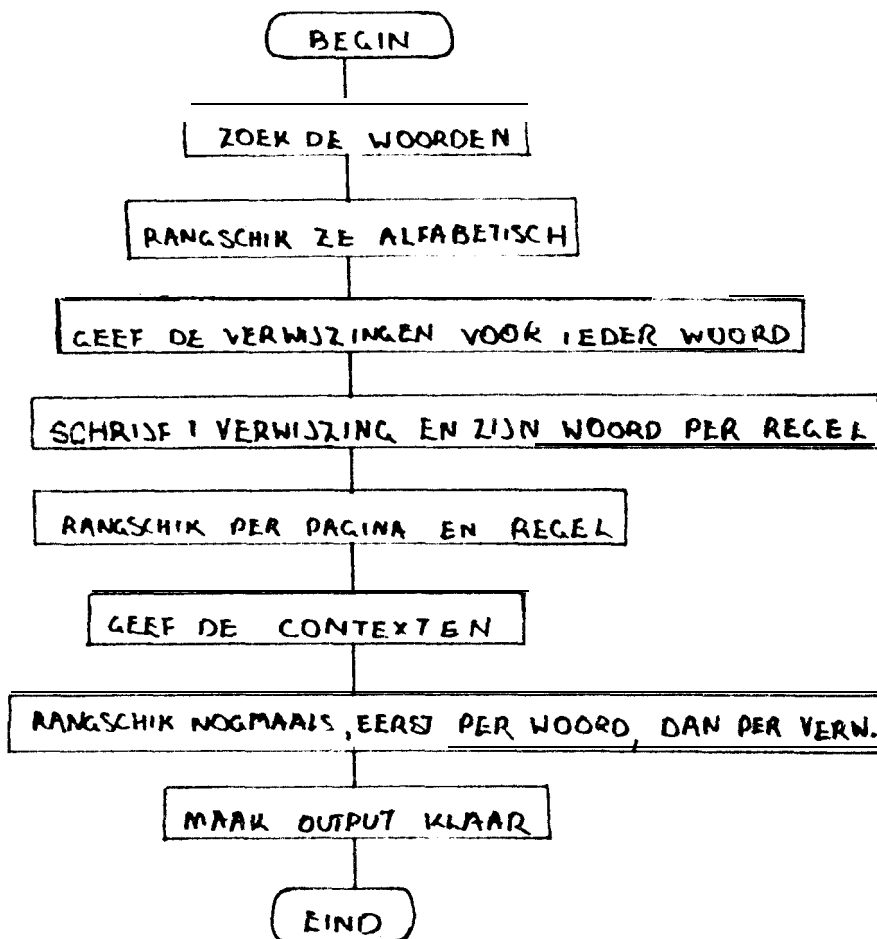 BEGIN
ZOEK DE WOORDEN
RANGSCHIK ZE ALFABETISCH
GEEF DE VERWIJZINGEN VOOR IEDER WOORD
SCHRIJF 1 VERWIJZING EN ZIJN WOORD PER REGEL
RANGSCHIK PER PAGINA EN REGEL
GEEF DE CONTEXTEN
RANGSCHIK NOGMAALS, EERST PER WOORD, DAN PER VERW.
MAAK OUTPUT KLAAR
EIND